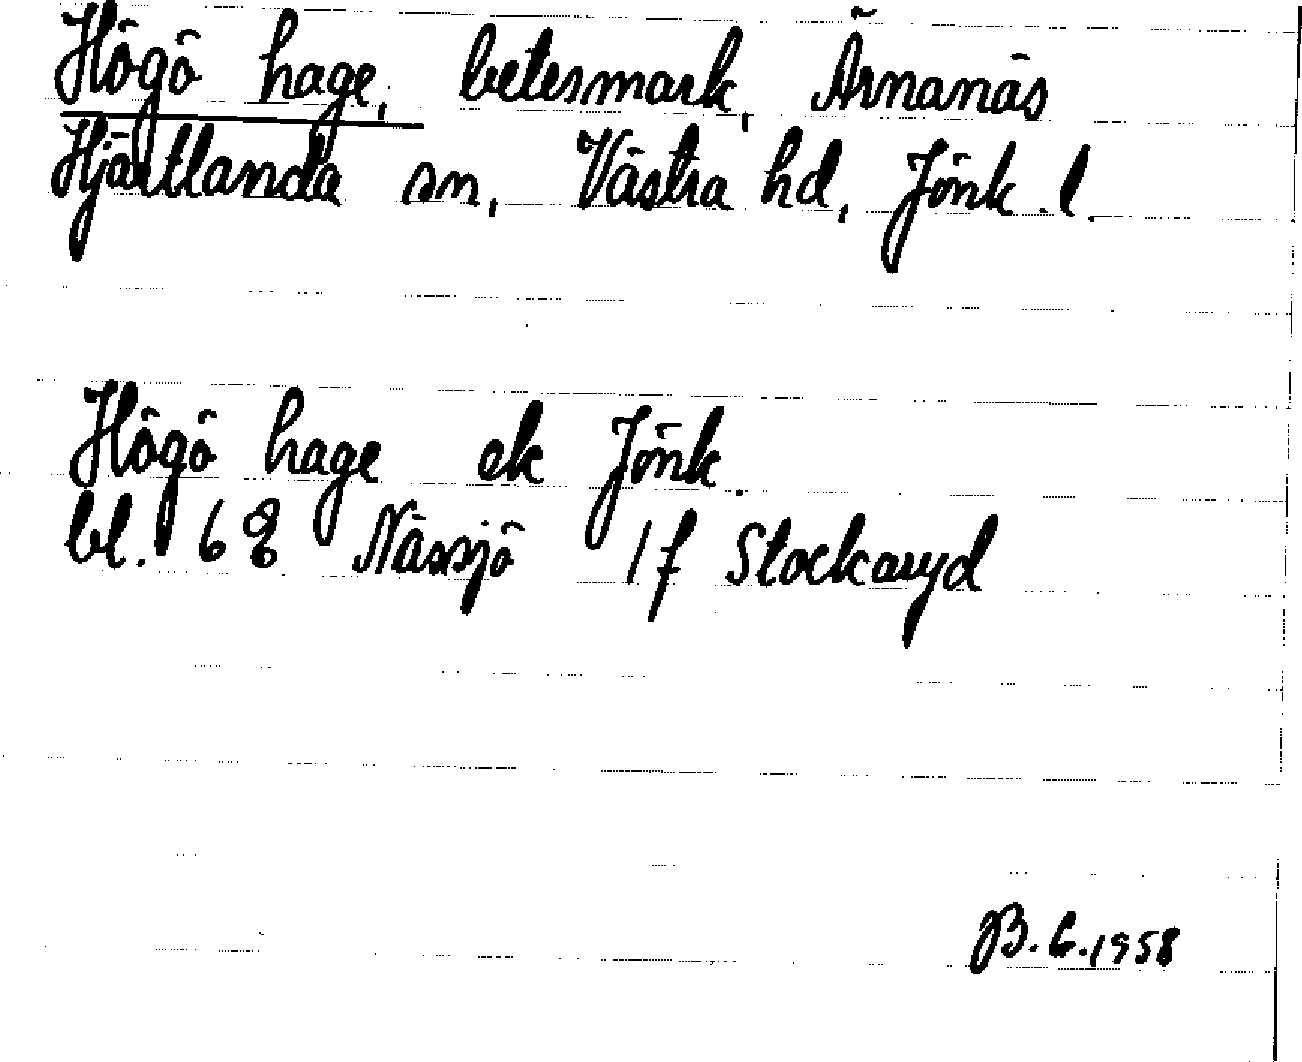 Högö hage, betesmark, Ärnanäs
Hjärtlanda sn, Västra hd, Jönk. l.
Högö hage ek Jönk.
bl. 68 Nässjö 1f Stockaryd
B. G. 1958